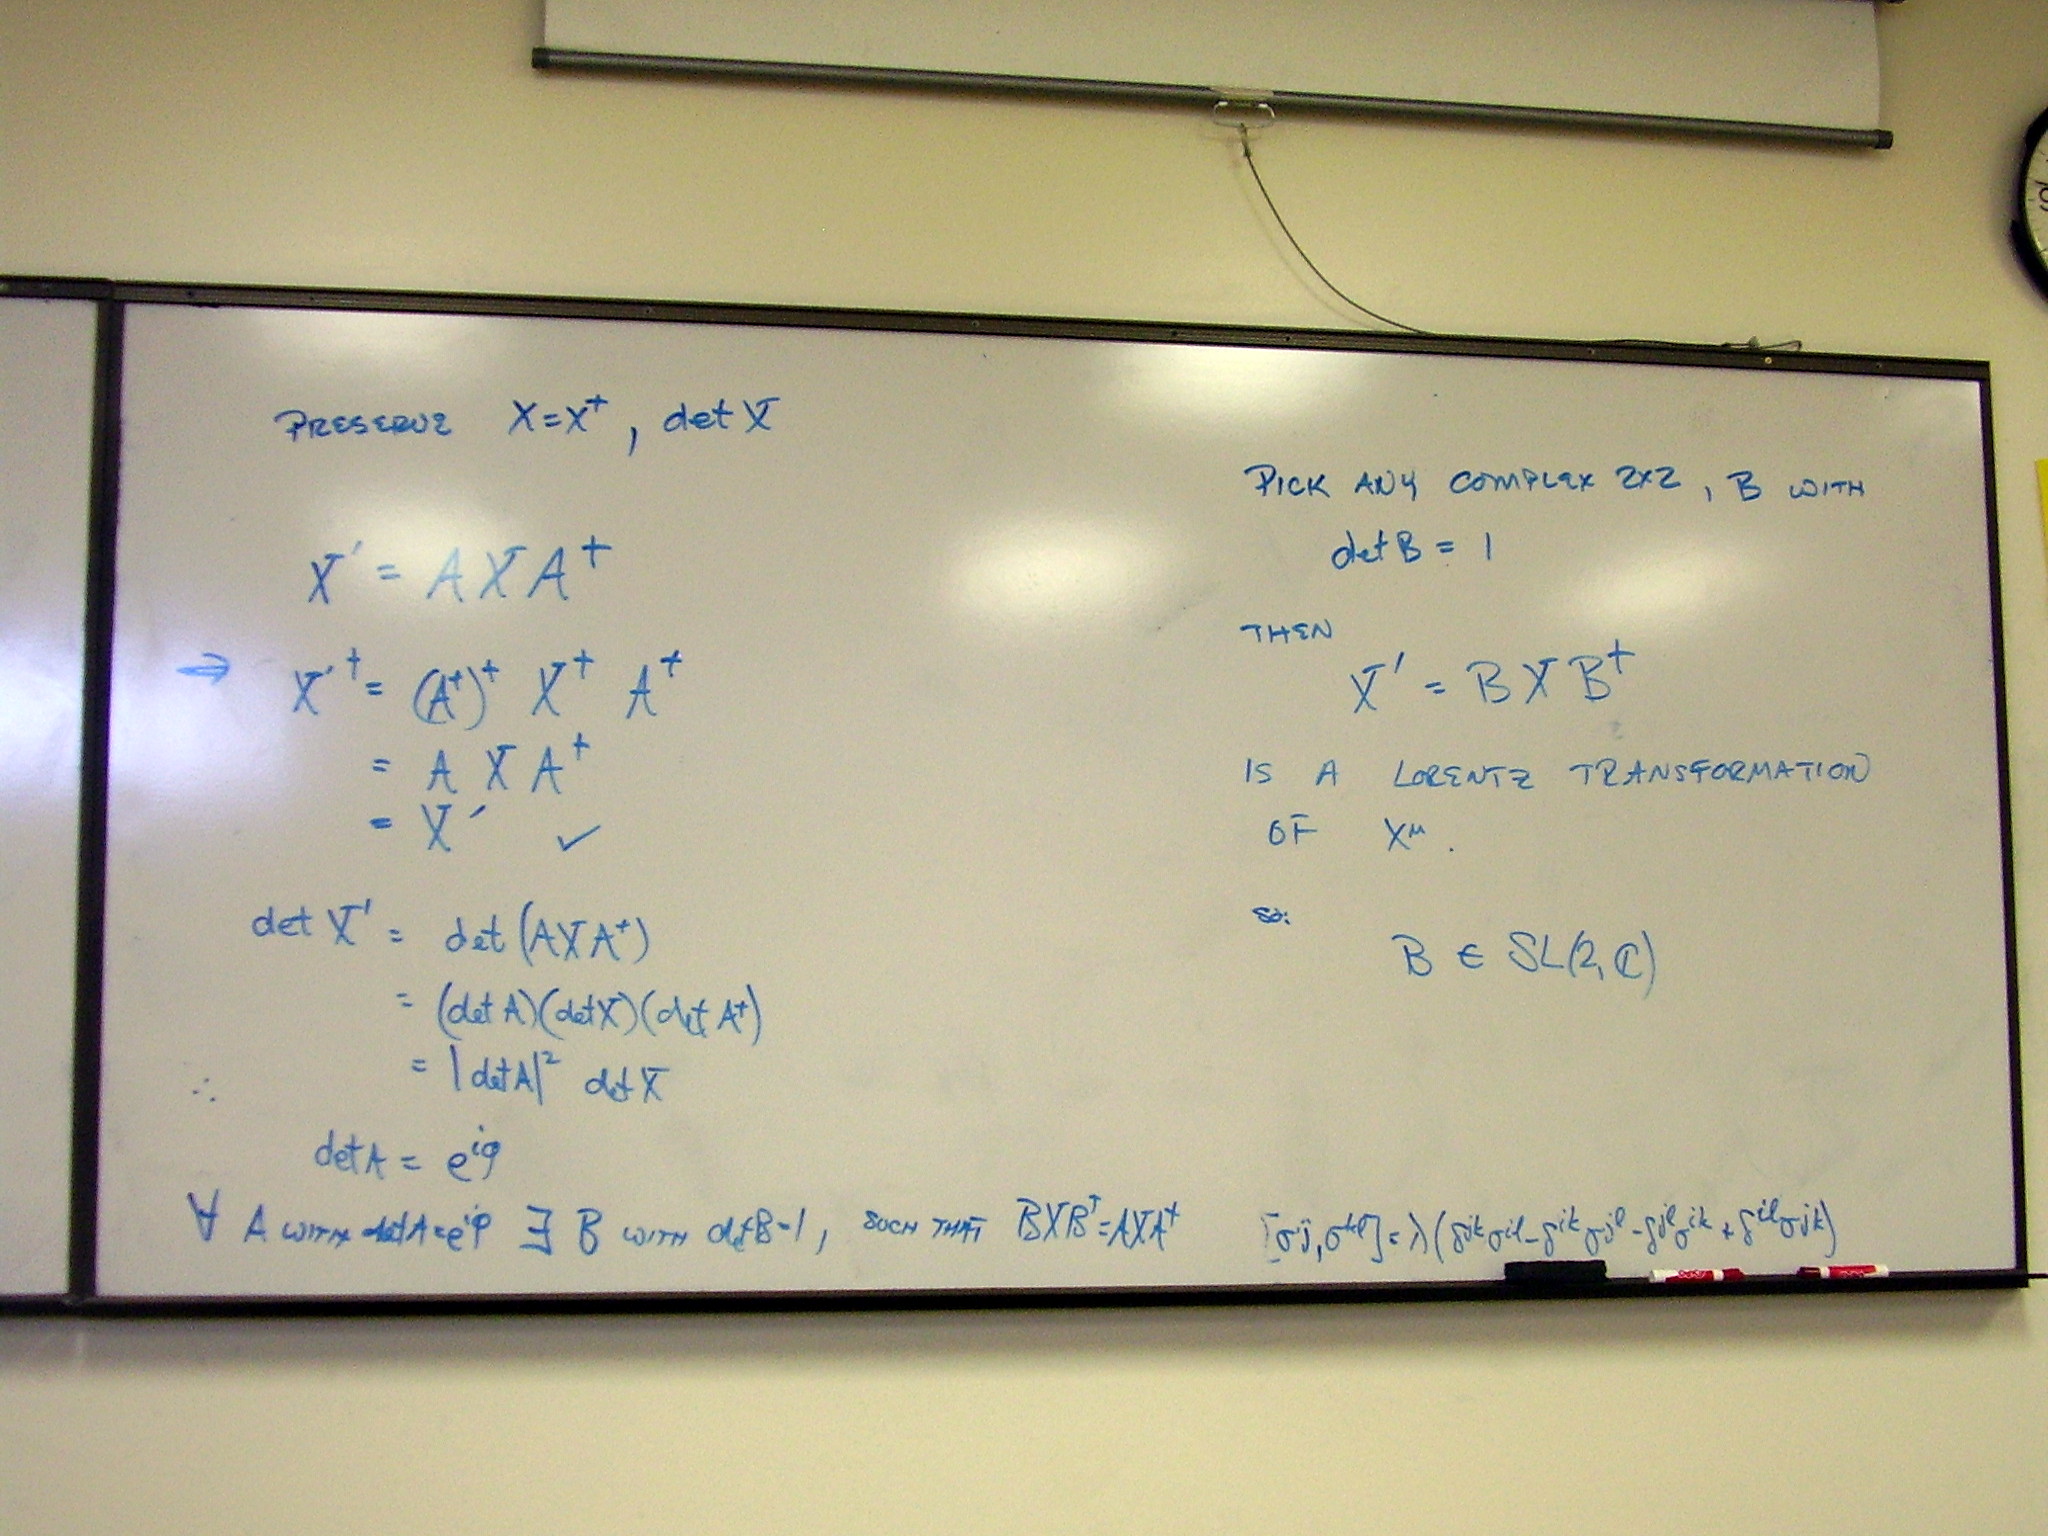 PRESERVE X=X† , det X
X′ = A X A†
⇒ X′† = (A†)† X† A†
= A X A†
= X′ ✓
det X′ = det (A X A†)
= (det A)(det X)(det A†)
= |det A|² det X
∴
det A = e^{iφ}
∀ A WITH det A = e^{iφ} ∃ B WITH det B = 1, SUCH THAT BXB† = AXA†
PICK ANY COMPLEX 2×2, B WITH
det B = 1
THEN
X′ = B X B†
IS A LORENTZ TRANSFORMATION
OF X^μ .
SO:
B ∈ SL(2, ℂ)
[σ^{ij}, σ^{kl}] = λ(δ^{jk}σ^{il} - δ^{ik}σ^{jl} - δ^{jl}σ^{ik} + δ^{il}σ^{jk})